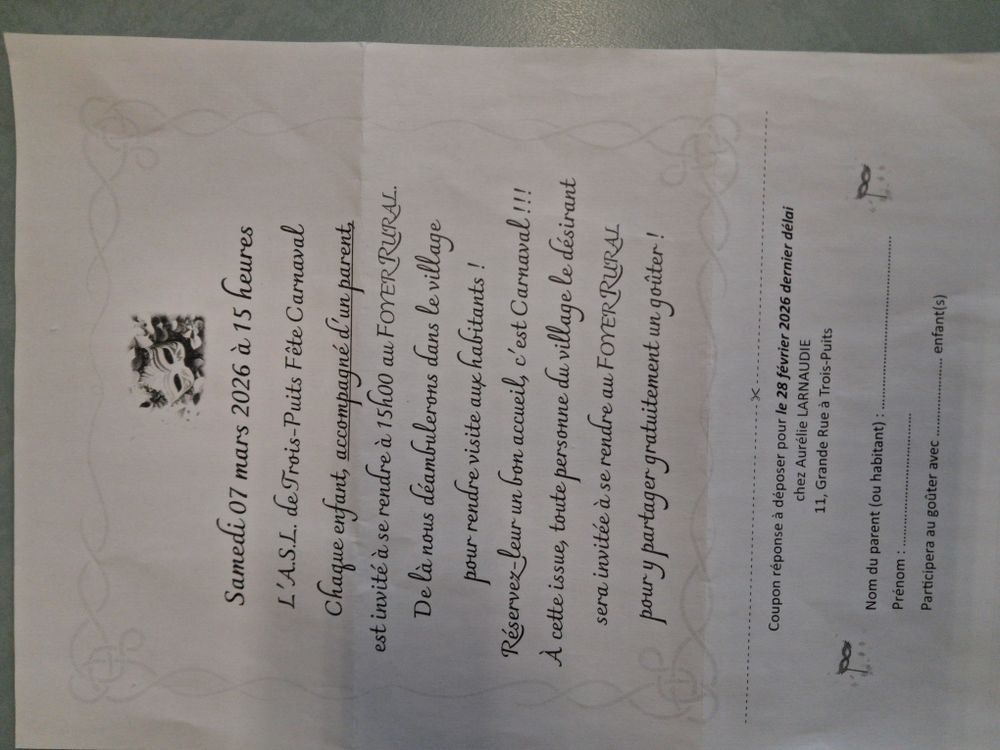 Samedi 07 mars 2026 à 15 heures
L'A.S.L. de Trois-Puits Fête Carnaval
Chaque enfant, accompagné d'un parent,
est invité à se rendre à 15h00 au FOYER RURAL.
De là nous déambulerons dans le village
pour rendre visite aux habitants !
Réservez-leur un bon accueil, c'est Carnaval !!!
À cette issue, toute personne du village le désirant
sera invitée à se rendre au FOYER RURAL
pour y partager gratuitement un goûter !
Coupon réponse à déposer pour le 28 février 2026 dernier délai
chez Aurélie LARNAUDIE
11, Grande Rue à Trois-Puits
Nom du parent (ou habitant) : ................................................
Prénom : ....................................
Participera au goûter avec ..................... enfant(s)